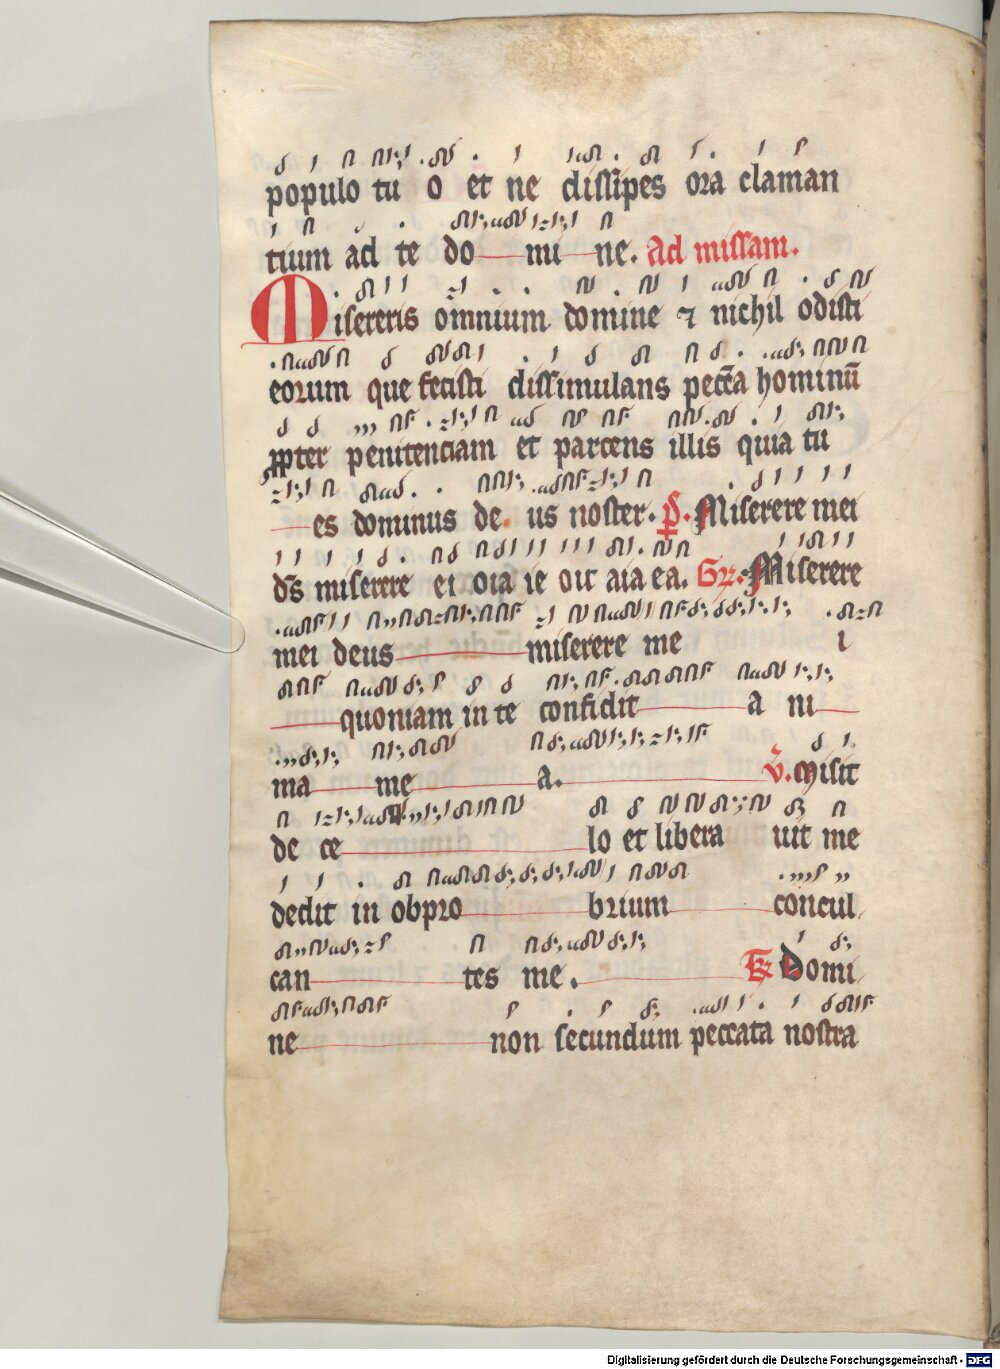 populo tu o et ne dissipes ora claman
tium ad te do mi ne. Ad missam.
Misereris omnium domine ⁊ nichil odisti
eorum que fecisti dissimulans pecc̄a hominū
ꝓpter penitenciam et parcens illis quia tu
es dominus de us noster. p̄. Miserere mei
ds̄ miserere ei oia ie oit aia ea. Gr. Miserere
mei deus miserere me i
quoniam in te confidit a ni
ma me a. V. Misit
de ce lo et libera uit me
dedit in obpro brium concul
can tes me. Tr Domi
ne non secundum peccata nostra
Digitalisierung gefördert durch die Deutsche Forschungsgemeinschaft - DFG